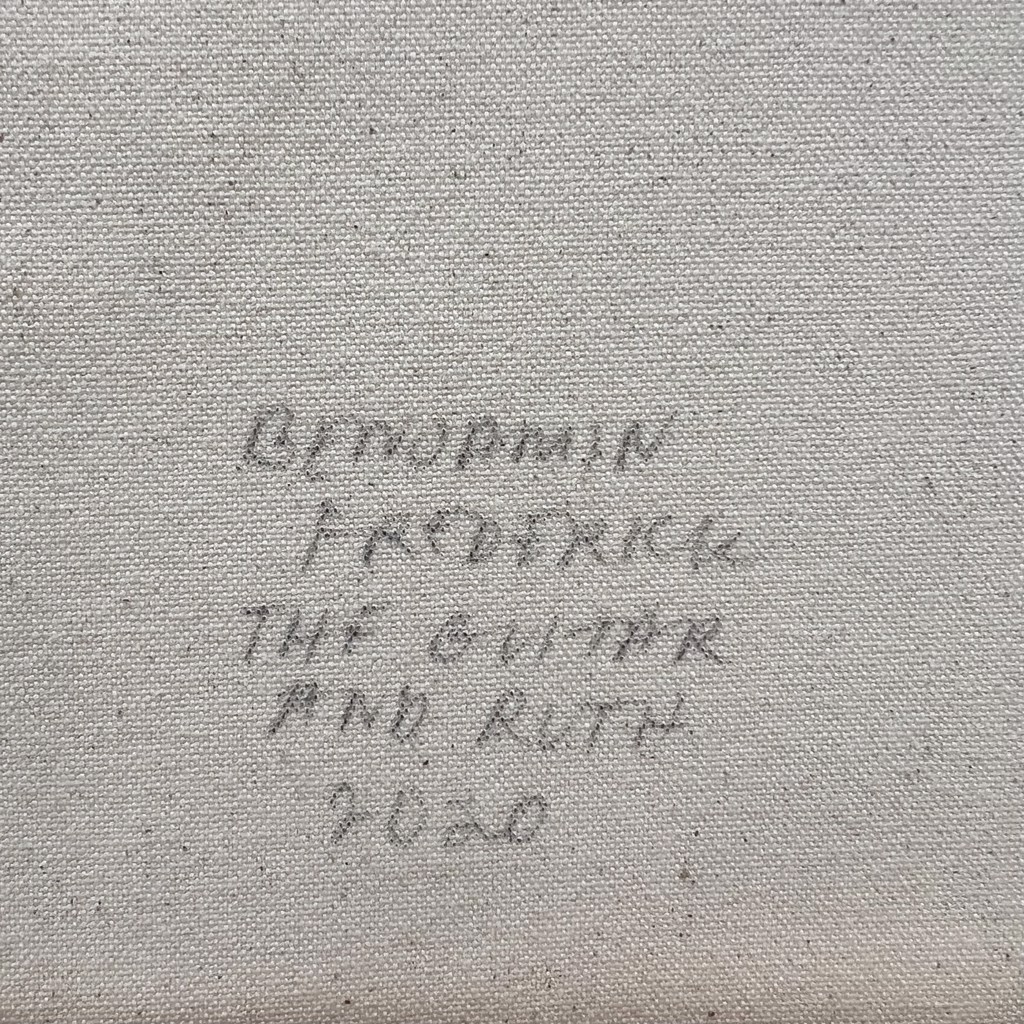 BENJAMIN
FREDERICK
THE GUITAR
AND RUTH
2020